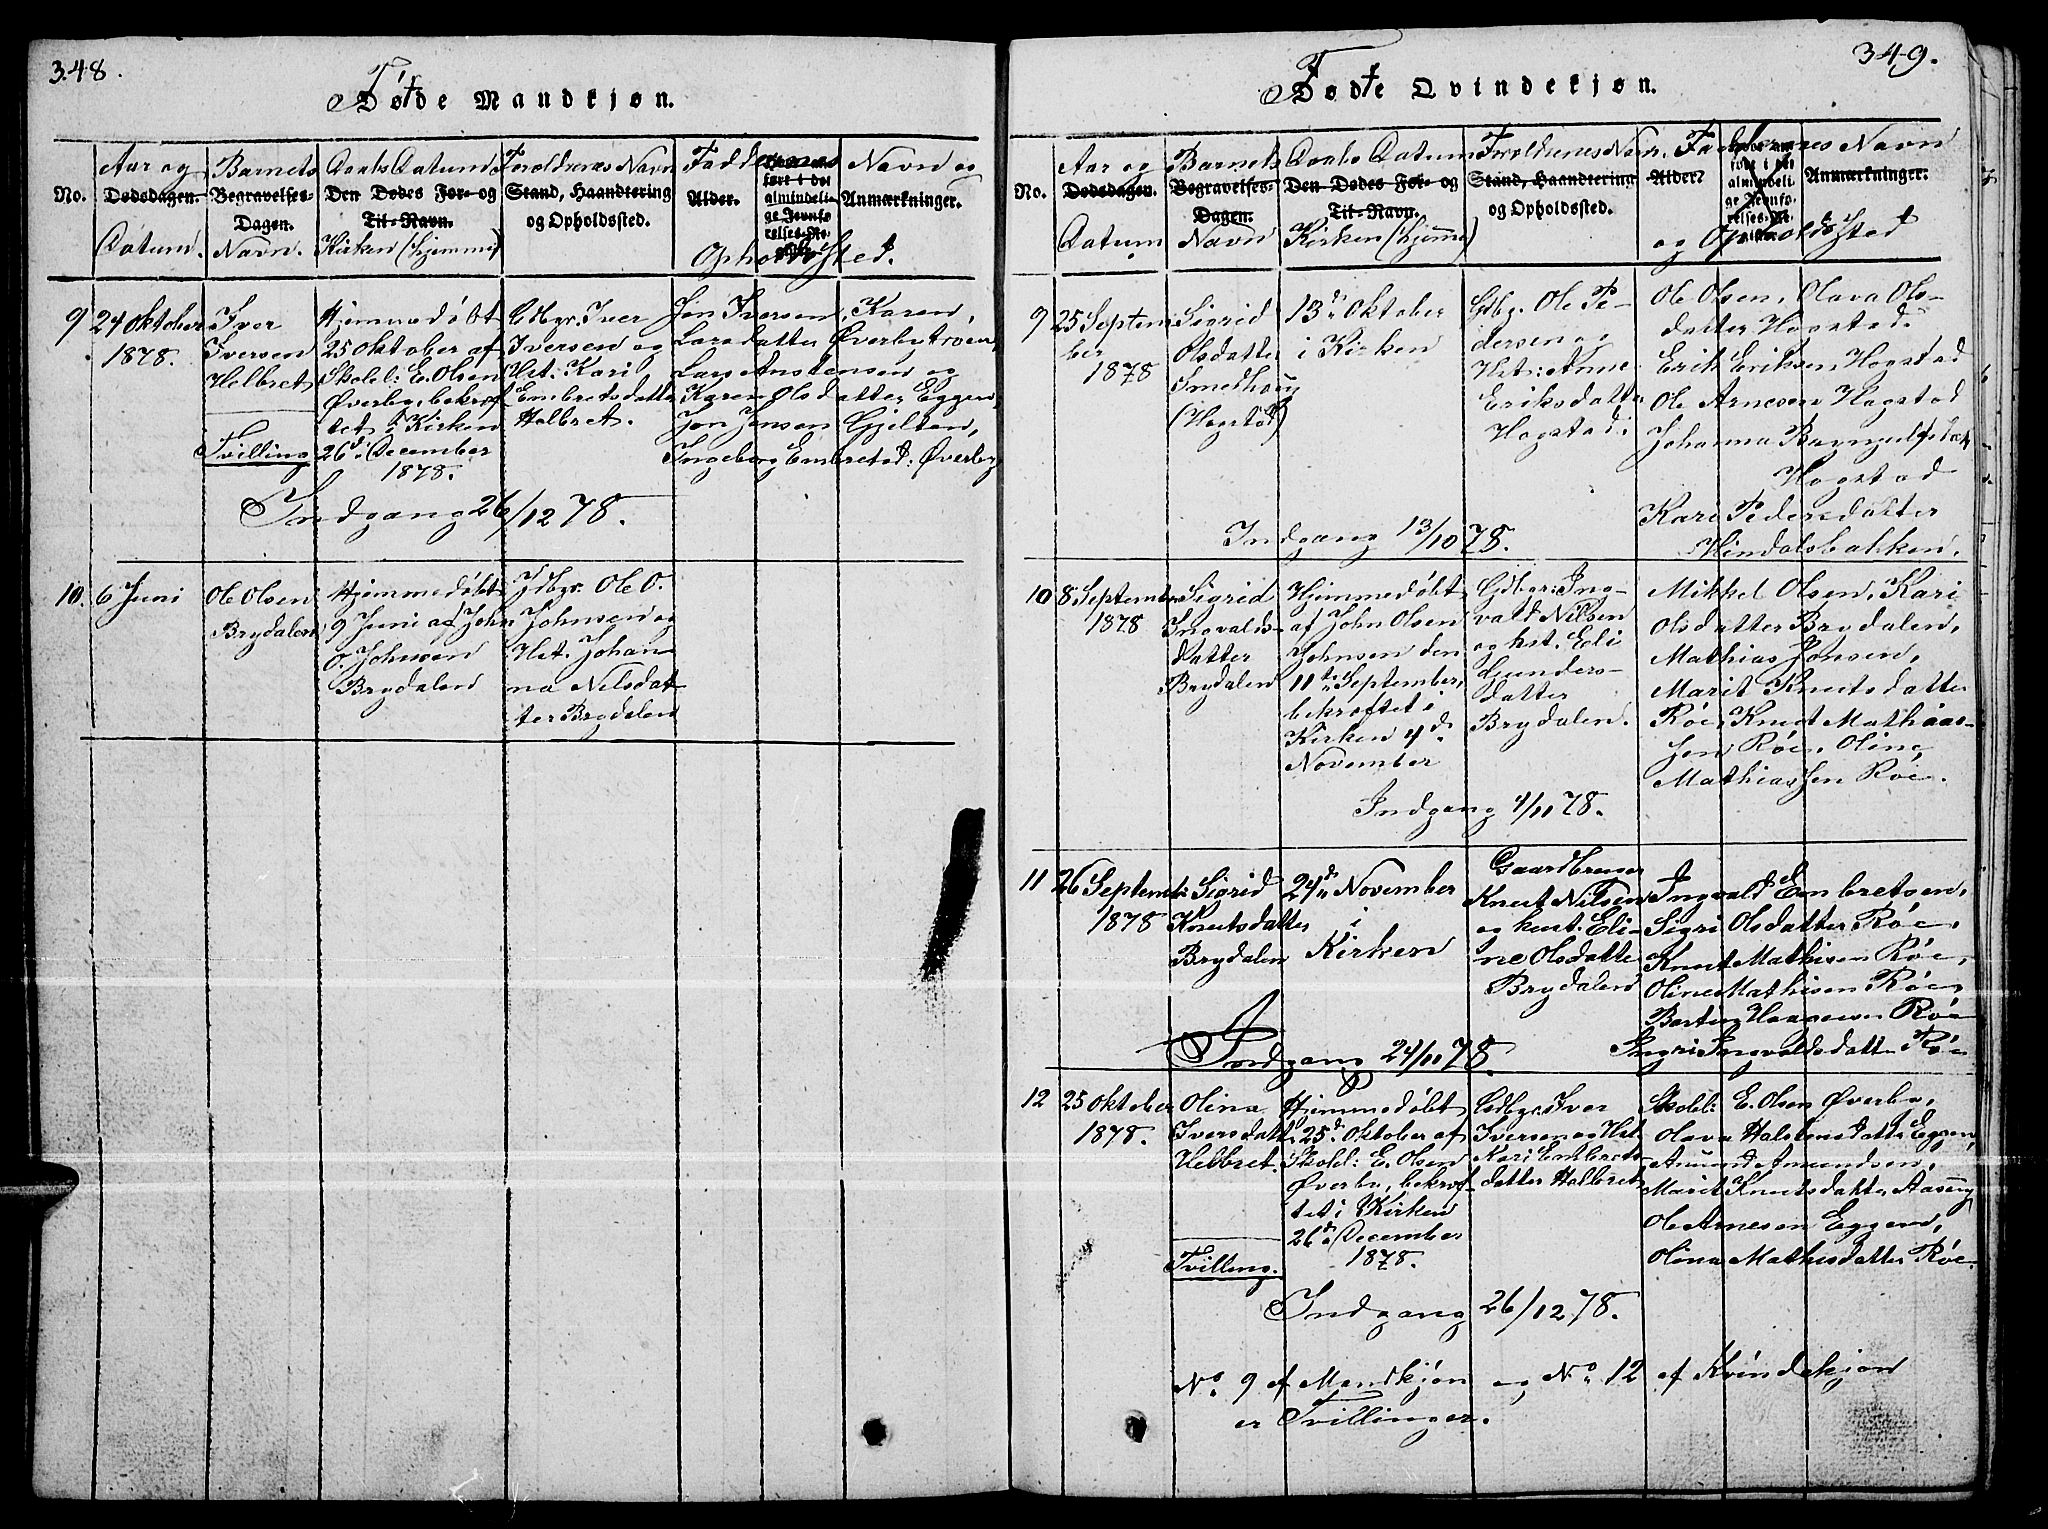 348.
Fødte Mandkjøn.
No.
Aar og
Dødsdagen.
Datum.
Barnets
Begravelses-
Dagen.
Navn.
Daabs Datum
Den Dødes For- og
Til-Navn.
Kirken (hjemme)
Forældrenes Navn
Stand, Haandtering
og Opholdssted.
Faddernes Navn og
Alder.
Anmærkninger.
Opholdssted.
9
24 Oktober
1878.
Iver
Iversen
Helbret
Tvilling
Hjemmedøbt
25 Oktober af
Skolel: E. Olsen
Øverby, bekræf
tet i Kirken
26d. December
1878.
Gdbgr. Iver
Iversen og
Hst: Kari
Embretsdatter
Helbret.
Jon Iversen, Karen
Larsdatter Øverbytrøen,
Lars Anstensen og
Karen Olsdatter Eggen,
Jon Jonsen Gjelten,
Ingeborg Embretsd: Øverby
Indgang 26/12 78.
10.
6 Juni
Ole Olsen
Brydalen
Hjemmedøbt
9 Juni af John
O. Johnsen
Brydalen
Gdbgr. Ole O.
Johnsen og
Hst. Johan-
na Nilsdat-
ter Brydalen
349.
Fødte Qvindekjøn.
No.
Aar og
Dødsdagen.
Datum
Barnets
Begravelses-
Dagen.
Navn
Daabs Datum
Den Dødes For- og
Til-Navn.
Kirken (hjemme)
Forældrenes Navn.
Stand, Haandtering
og Opholdssted.
Faddernes Navn
Alder.
Anmærkninger.
og Opholdssted
9
25 Septem-
ber
1878
Sigrid
Olsdatter
Smedhaug
(Hogstad)
13d. Oktober
i Kirken
Gdbg. Ole Pe-
dersen og
Hst: Anne
Eriksdatter
Hogstad.
Ole Olsen, Olava Ols-
datter Hogstad.
Erik Eriksen Hogstad
Ole Arnesen Hogstad
Johanna
Hogstad
Kari Pedersdatter
Hindalsbakken.
Indgang 13/10 78.
10
8 Septemb.
1878
Sigrid
Ingvalds-
datter
Brydalen
Hjemmedøbt
af John Olsen
Johnsen den
11te September,
bekræftet i
Kirken 4d.
November
Gdbgr: Ing-
vald Nilsen
og hst. Eli
Gunders-
datter
Brydalen.
Mikkel Olsen, Kari
Olsdatter Brydalen,
Mathias Jonsen,
Marit Knutsdatter
Røe, Knut Mathias-
sen Røe, Oline
Mathiassen Røe.
Indgang 4/11 78.
11
26 Septemb:
1878
Sigrid
Knutsdatter
Brydalen
24d. November
i
Kirken
Gaardbruger
Knut Nilsen
og hust. Eli-
ne Olsdatter
Brydalen
Ingvald Embretsen,
Sigri Olsdatter Røe,
Knut Mathisen Røe,
Oline Mathisen Røe,
Haagensen Røe
Ingri Ingvaldsdatter Røe
Indgang 24/11 78.
12
25 Oktober
1878.
Olina
Iversdatter
Helbret.
Tvilling.
Hjemmedøbt
25d. Oktober af
Skolel: E. Olsen
Øverby, bekræf-
tet i Kirken
26d. December
1878.
Gdbgr. Iver
Iversen og Hst.
Kari Embrets-
datter Helbret
Skolel: E. Olsen Øverby,
Olava Halstensdatter Eggen,
Amund Amundsen,
Marit Knutsdatter Aaseng
Ole Arnesen Eggen,
Olina Mathisdatter Røe.
Indgang 26/12 78.
No. 9 af Mandkjøn og No. 12 af Kvindekjøn
er Tvillinger.